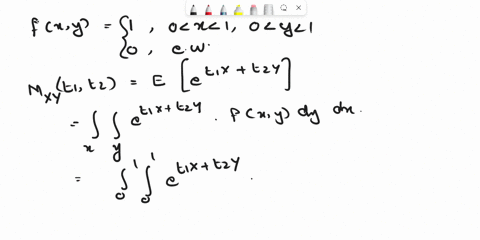 f(x,y) = { 1 , 0<x<1, 0<y<1
0 , e.w.
M_XY(t1,t2) = E [e^{t1X+t2Y}]
= ∫_x ∫_y e^{t1X+t2Y} . f(x,y) dy dx.
= ∫_0^1 ∫_0^1 e^{t1X+t2Y} .